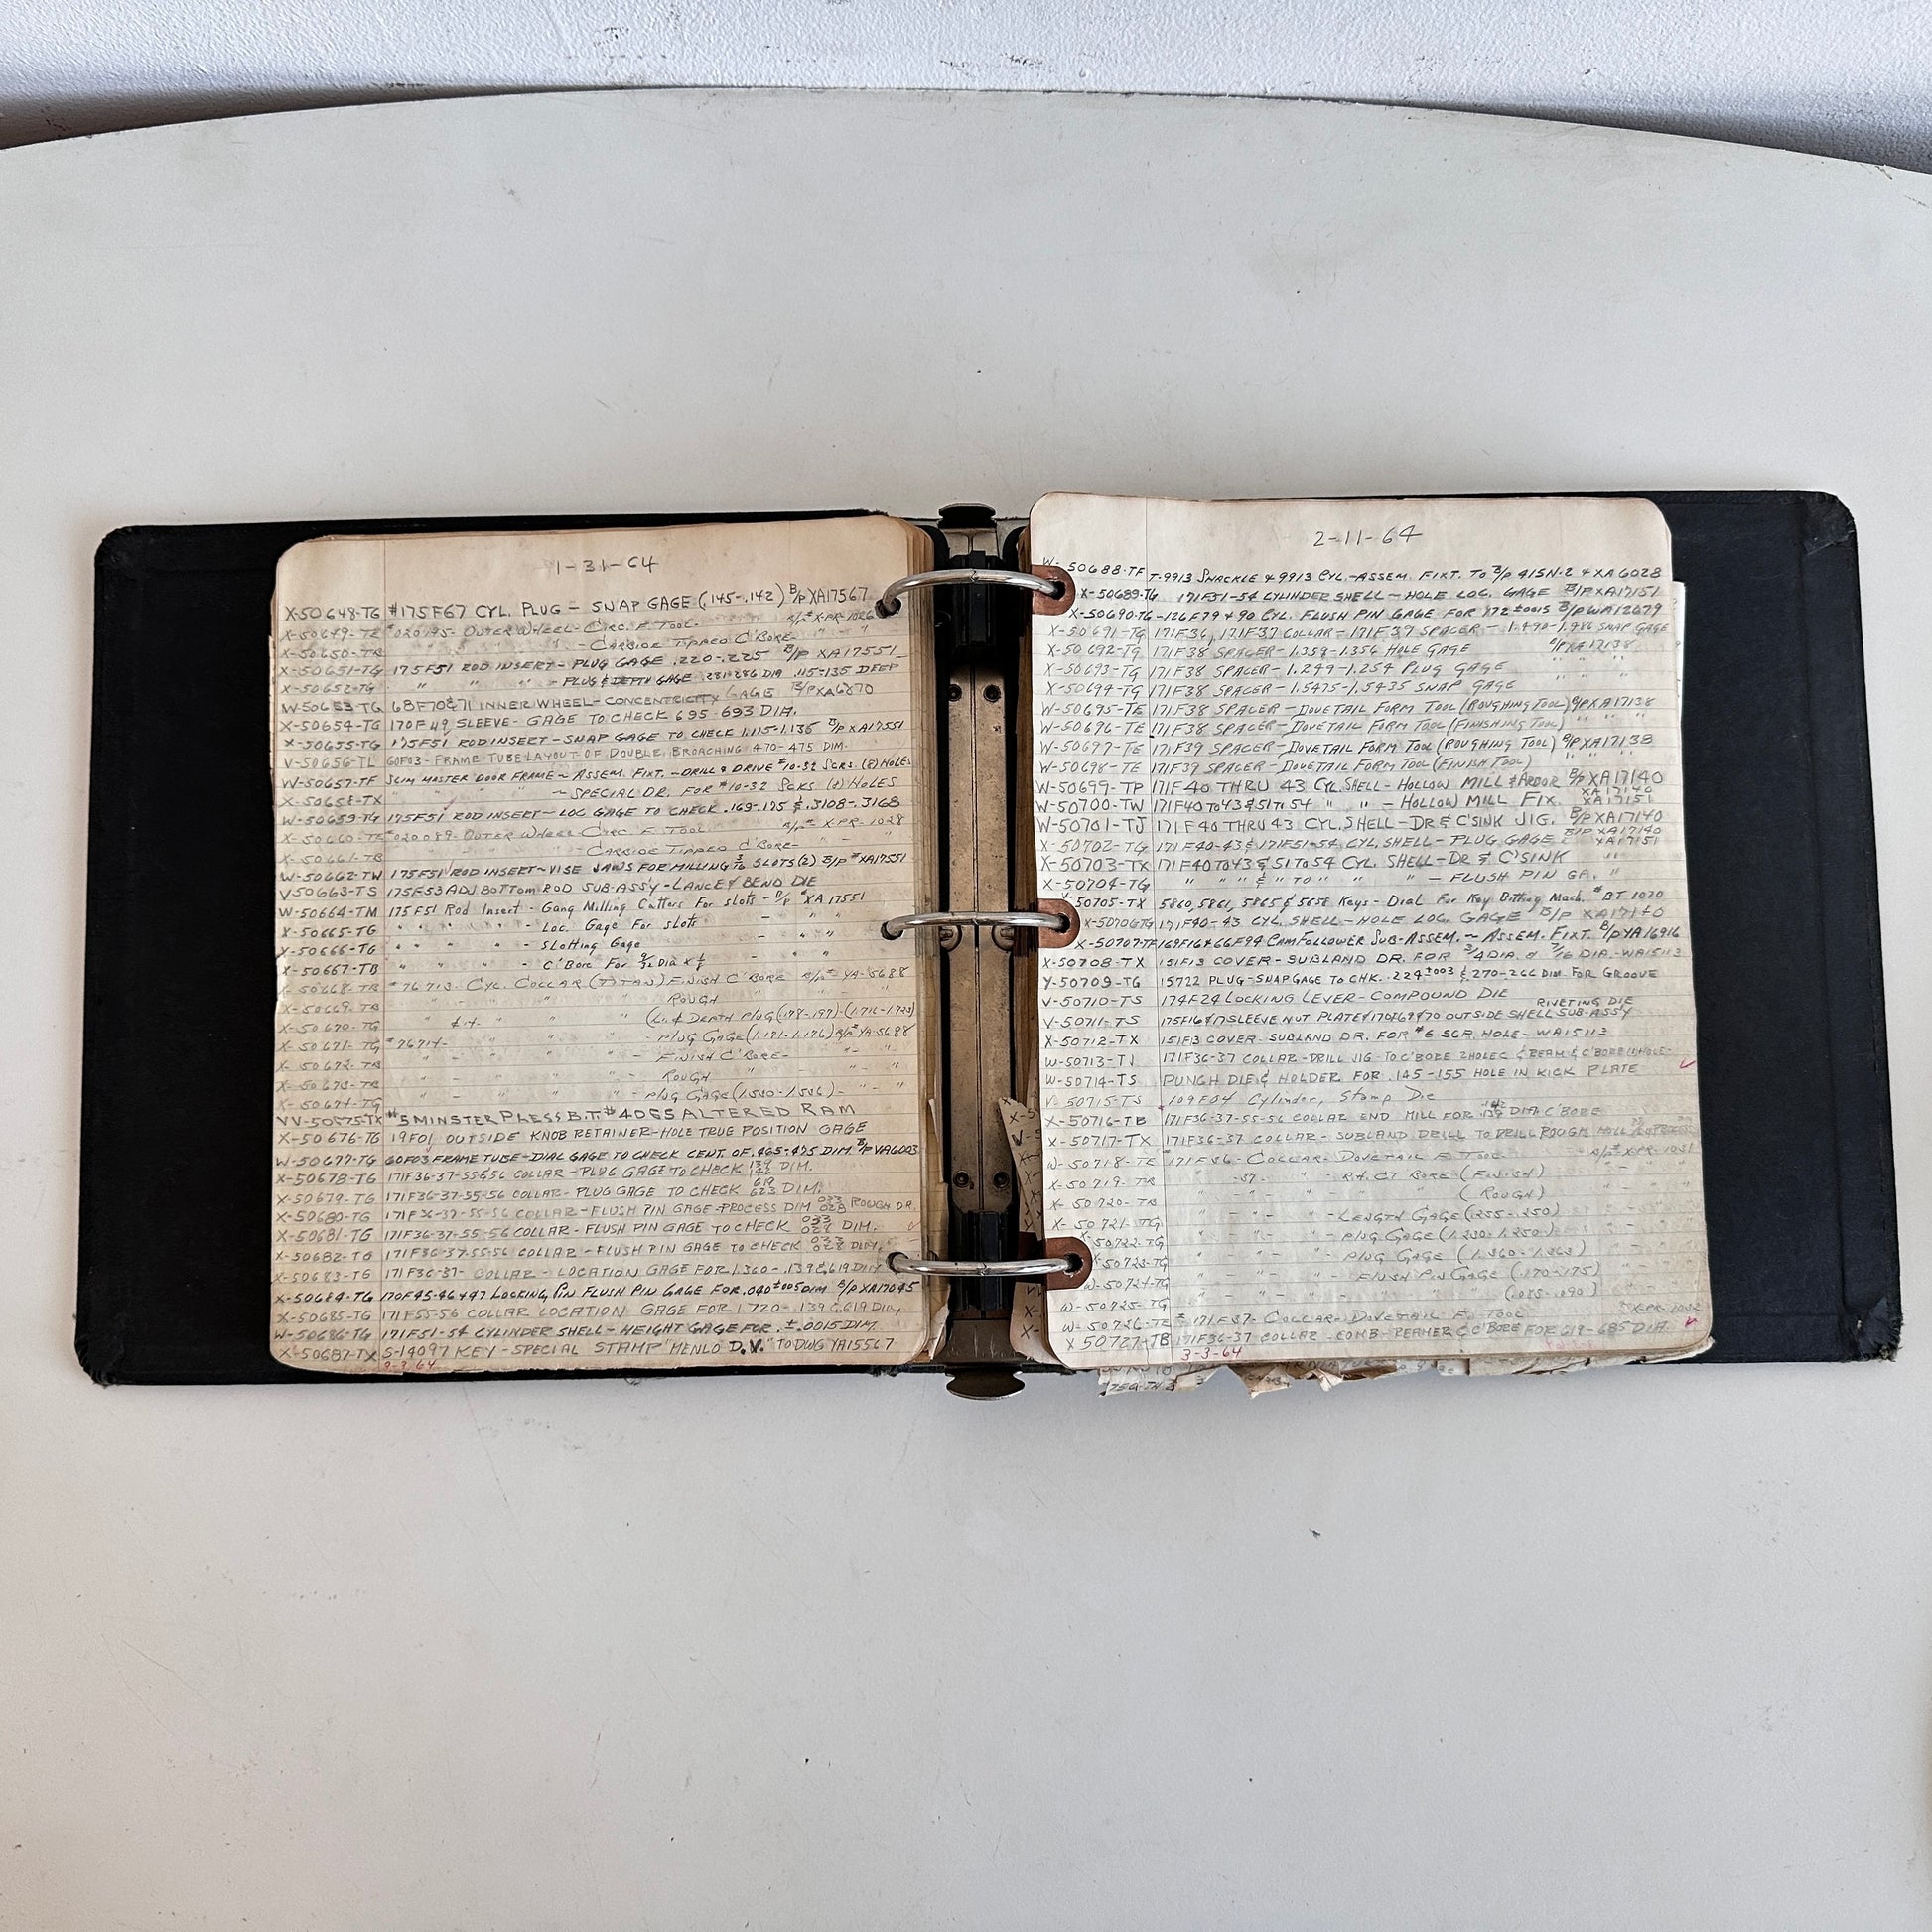 1-31-64
X-50648-TG #175F67 CYL. PLUG - SNAP GAGE (.145-.142) B/P XA17567
X-50649-TE #020195- OUTER WHEEL-CIRC. F. TOOL- B/P# X-PR-1026
X-50650-TB " " " -CARBIDE TIPPED C'BORE- " " "
X-50651-TG 175F51 ROD INSERT - PLUG GAGE .220-.225 B/P XA17551
X-50652-TG " " " - PLUG & DEPTH GAGE .281-286 DIA .115-135 DEEP
W-50653-TG 68F70&71 INNER WHEEL-CONCENTRICITY GAGE B/P XA6870
X-50654-TG 170F49 SLEEVE- GAGE TO CHECK 695-693 DIA.
X-50655-TG 175F51 ROD INSERT - SNAP GAGE TO CHECK 1.115-1.135 B/P XA17551
V-50656-TL 60F03-FRAME TUBE LAYOUT OF DOUBLE BROACHING 470-475 DIM.
W-50657-TF SLIM MASTER DOOR FRAME ~ ASSEM. FIXT. - DRILL & DRIVE #10-32 SCRS. (8) HOLES
X-50658-TX " " " " ~ SPECIAL DR. FOR #10-32 SCRS (8) HOLES
W-50659-TG 175F51 ROD INSERT - LOC GAGE TO CHECK .169-.175 & .3108-.3168
X-50660-TE #020089-OUTER WHEEL CIRC. F. TOOL B/P# X-PR-1028
X-50661-TB -CARBIDE TIPPED C'BORE- " " "
W-50662-TW 175F51 ROD INSERT-VISE JAWS FOR MILLING 3/16 SLOTS (2) B/P #XA17551
V-50663-TS 175F53 ADJ BOTTOM ROD SUB-ASS'Y-LANCE & BEND DIE
W-50664-TM 175F51 Rod Insert - Gang Milling Cutters For slots - B/P #XA17551
X-50665-TG " " " - Loc. Gage For slots - " "
X-50666-TG " " " - Slotting Gage - " "
X-50667-TB " " " - C'Bore For 9/32 Dia x - " "
X-50668-TB #76713- CYL. COLLAR (TITAN) FINISH C'BORE B/P# YA-5688
X-50669-TB " - " " " ROUGH " " - "
X-50670-TG " & 14- " " " (L. & DEPTH PLUG (.178-.197)-(1.716-1.723)
X-50671-TG #76714- " " " - PLUG GAGE (1.171-1.176) B/P# YA-5688
X-50672-TB " - " " " - FINISH C'BORE- " - "
X-50673-TB " - " " " - ROUGH " " - "
X-50674-TG " - " " " - PLUG GAGE (1.580-1.586)- " - "
VV-50675-TX #5 MINSTER PRESS B.T. #4055 ALTERED RAM
X-50676-TG 19F01 OUTSIDE KNOB RETAINER-HOLE TRUE POSITION GAGE
W-50677-TG 60F03 FRAME TUBE-DIAL GAGE TO CHECK CENT. OF .465-475 DIM. B/P VA6003
X-50678-TG 171F36-37-55&56 COLLAR - PLUG GAGE TO CHECK DIM.
X-50679-TG 171F36-37-55-56 COLLAR- PLUG GAGE TO CHECK 619 623 DIM.
X-50680-TG 171F36-37-55-56 COLLAR-FLUSH PIN GAGE-PROCESS DIM 033 028 ROUGH DR.
X-50681-TG 171F36-37-55-56 COLLAR - FLUSH PIN GAGE TO CHECK 033 028 DIM.
X-50682-TG 171F36-37-55-56 COLLAR - FLUSH PIN GAGE TO CHECK 033 028 DIM.
X-50683-TG 171F36-37- COLLAR - LOCATION GAGE FOR 1.360-.139 & 619 DIM
X-50684-TG 170F45-46&47 LOCKING PIN FLUSH PIN GAGE FOR .040±005 DIM B/P XA17045
X-50685-TG 171F55-56 COLLAR LOCATION GAGE FOR 1.720-.139 & .619 DIM.
W-50686-TG 171F51-54 CYLINDER SHELL-HEIGHT GAGE FOR .±.0015 DIM.
X-50687-TX S-14097 KEY-SPECIAL STAMP "MENLO D.V." TO DWG YA15567
3-3-64
2-11-64
W-50688-TF T-9913 SHACKLE & 9913 CYL.-ASSEM. FIXT. TO B/P 415N-2 & XA6028
X-50689-TG 171F51-54 CYLINDER SHELL - HOLE LOC. GAGE B/P XA17151
X-50690-TG-126F79 & 90 CYL. FLUSH PIN GAGE FOR 172±0015 B/P WA12079
X-50691-TG 171F36, 171F37 COLLAR-171F39 SPACER- 1.490-1.486 SNAP GAGE
X-50692-TG 171F38 SPACER-1.359-1.356 HOLE GAGE B/P XA17138
X-50693-TG 171F38 SPACER-1.249-1.254 PLUG GAGE " " "
X-50694-TG 171F38 SPACER-1.5475-1.5435 SNAP GAGE " " "
W-50695-TE 171F38 SPACER-DOVETAIL FORM TOOL (ROUGHING TOOL) B/P XA17138
W-50696-TE 171F38 SPACER-DOVETAIL FORM TOOL (FINISHING TOOL) " " "
W-50697-TE 171F39 SPACER-DOVETAIL FORM TOOL (ROUGHING TOOL) B/P XA17138
W-50698-TE 171F39 SPACER-DOVETAIL FORM TOOL (FINISH TOOL) " "
W-50699-TP 171F40 THRU 43 CYL. SHELL-HOLLOW MILL & ARBOR B/P XA17140
W-50700-TW 171F40TO43&51TO54 " " - HOLLOW MILL FIX. XA17140 XA17151
W-50701-TJ 171F40 THRU 43 CYL. SHELL-DR & C'SINK JIG. B/P XA17140
X-50702-TG 171F40-43 & 171F51-54 CYL. SHELL- PLUG GAGE B/P XA17140 XA17151
X-50703-TX 171F40TO43 & 51TO54 CYL. SHELL-DR & C'SINK "
X-50704-TG " " " & " TO " " " - FLUSH PIN GA. "
X-50705-TX 5860, 5861, 5865 & 5658 Keys - Dial For Key Bitting Mach. #BT 1070
X-50706TG 171F40-43 CYL. SHELL-HOLE LOC. GAGE B/P XA17140
X-50707-TF 169F16&66F94 CAM FOLLOWER SUB-ASSEM. ~ ASSEM. FIXT. B/P YA16916
X-50708-TX 151F13 COVER-SUBLAND DR. FOR 3/4 DIA. & 7/16 DIA-WA15113
Y-50709-TG 15722 PLUG-SNAP GAGE TO CHK. .224±003 & 270-266 DIM FOR GROOVE
V-50710-TS 174F24 LOCKING LEVER-COMPOUND DIE
V-50711-TS 175F16&17 SLEEVE NUT PLATE & 170F69&70 OUTSIDE SHELL SUB-ASS'Y RIVETING DIE
X-50712-TX 151F13 COVER-SUBLAND DR. FOR #6 SCR. HOLE-WA15113
W-50713-TJ 171F36-37 COLLAR-DRILL JIG-TO C'BORE 2 HOLES & REAM & C'BORE 1 HOLE-
W-50714-TS PUNCH DIE & HOLDER FOR .145-155 HOLE IN KICK PLATE
V-50715-TS 109F04 Cylinder, Stamp Die
X-50716-TB 171F36-37-55-56 COLLAR END MILL FOR DIA. C'BORE
X-50717-TX 171F36-37 COLLAR-SUBLAND DRILL TO DRILL ROUGH
W-50718-TE #171F36-COLLAR-DOVETAIL F. TOOL- B/P# X-PR-1031
X-50719-TB " -37- " RH. CT BORE (FINISH) " - "
X-50720-TB " - " - " " (ROUGH) " - "
X-50721-TG " - " - " - LENGTH GAGE (.255-.250) " - "
X-50722-TG " - " - " - PLUG GAGE (1.230-1.250) " - "
X-50723-TG " - " - " - PLUG GAGE (1.360-1.363) " - "
W-50724-TG " - " - " - FLUSH PIN GAGE (.170-.175) " - "
W-50725-TG " - " - " " " " (.085-.090) " "
W-50726-TE #171F37-COLLAR-DOVETAIL F. TOOL X-PR-1032
X 50727-TB 171F36-37 COLLAR -COMB-REAMER & C'BORE FOR 619-685 DIA.
3-3-64